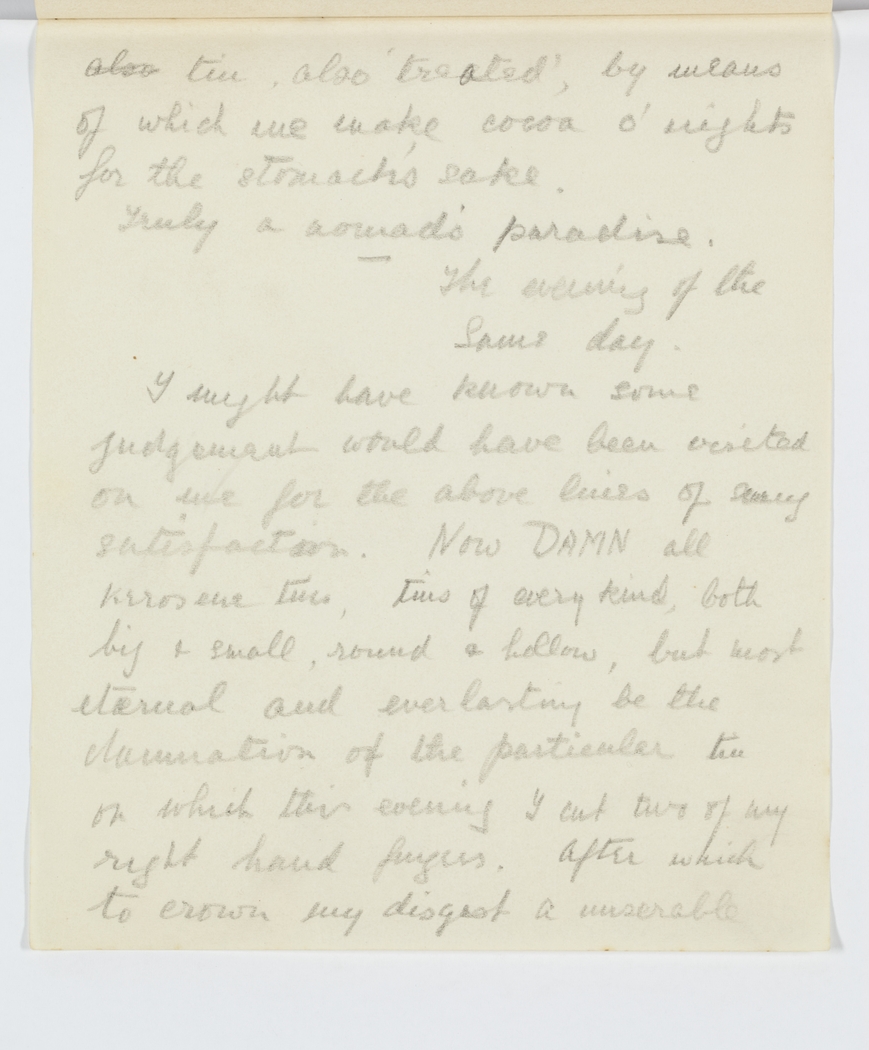 also tin, also 'treated', by means
of which we make cocoa o' nights
for the stomach's sake.
Truly a nomad's paradise.
The evening of the
Same day.
I might have known some
judgement would have been visited
on me for the above lines of smug
satisfaction. Now DAMN all
kerosene tins, tins of every kind, both
big & small, round & hollow, but most
eternal and everlasting be the
damnation of the particular tin
on which this evening I cut two of my
right hand fingers. After which
to crown my disgust a miserable